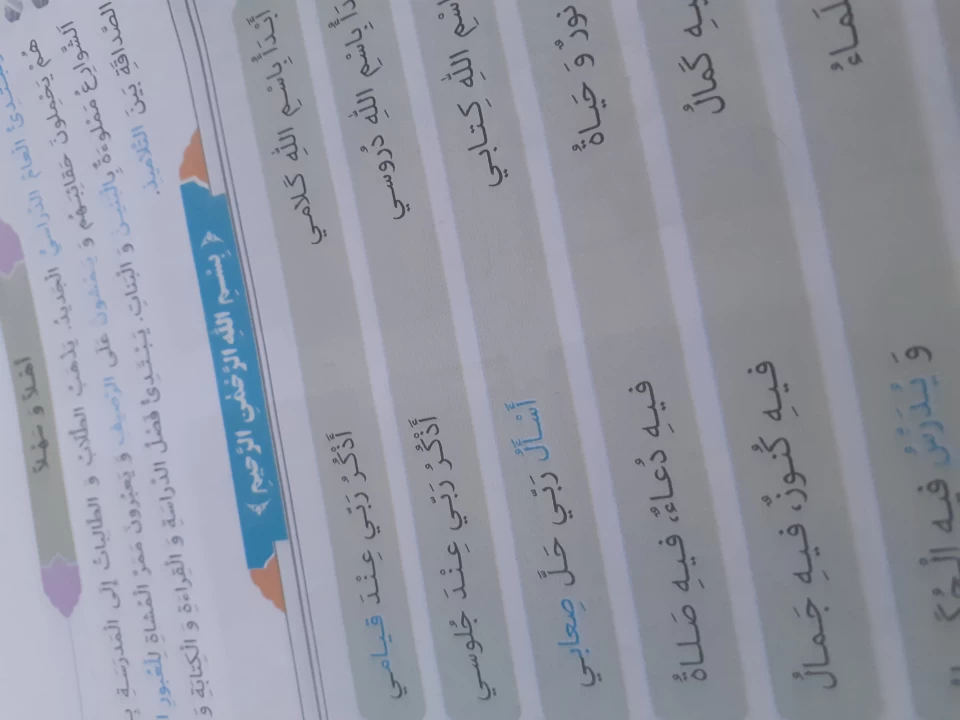 أَهْلاً وَ سَهْلاً
الْعَامُ الدِّراسِيُّ الْجَدِيدُ. يَذْهَبُ الطُّلّابُ وَ الطّالِباتُ إِلَى الْمَدْرَسَةِ
هُمْ يَحْمِلُونَ حَقَائِبَهُمْ وَ يَمْشُونَ عَلَى الرَّصِيفِ وَ يَعْبُرُونَ مَمَرَّ الْمُشَاةِ لِلْعُبُورِ
الشَّوارِعُ مَمْلُوءَةٌ بِالْبَنينَ وَ الْبَناتِ. يَبْتَدِئُ فَصْلُ الدِّراسَةِ وَ الْقِراءَةِ وَ الْكِتابَةِ وَ
الصَّداقَةِ بَيْنَ التَّلامِيذِ.
﴿ بِسْمِ اللهِ الرَّحْمٰنِ الرَّحِيمِ ﴾
أَبْدَأُ بِاسْمِ اللهِ كَلامي أَذْكُرُ رَبّي عِنْدَ قِيامي
بِاسْمِ اللهِ دُرُوسي أَذْكُرُ رَبّي عِنْدَ جُلُوسي
اللهِ كِتابي أَسْأَلُ رَبّي حَلَّ صِعابي
نورٌ وَ حَياةٌ فيهِ دُعاءٌ، فيهِ صَلاةٌ
كَمالُ فيهِ كُنُوزٌ، فيهِ جَمالُ
وَ يُدَرَّسُ فيهِ